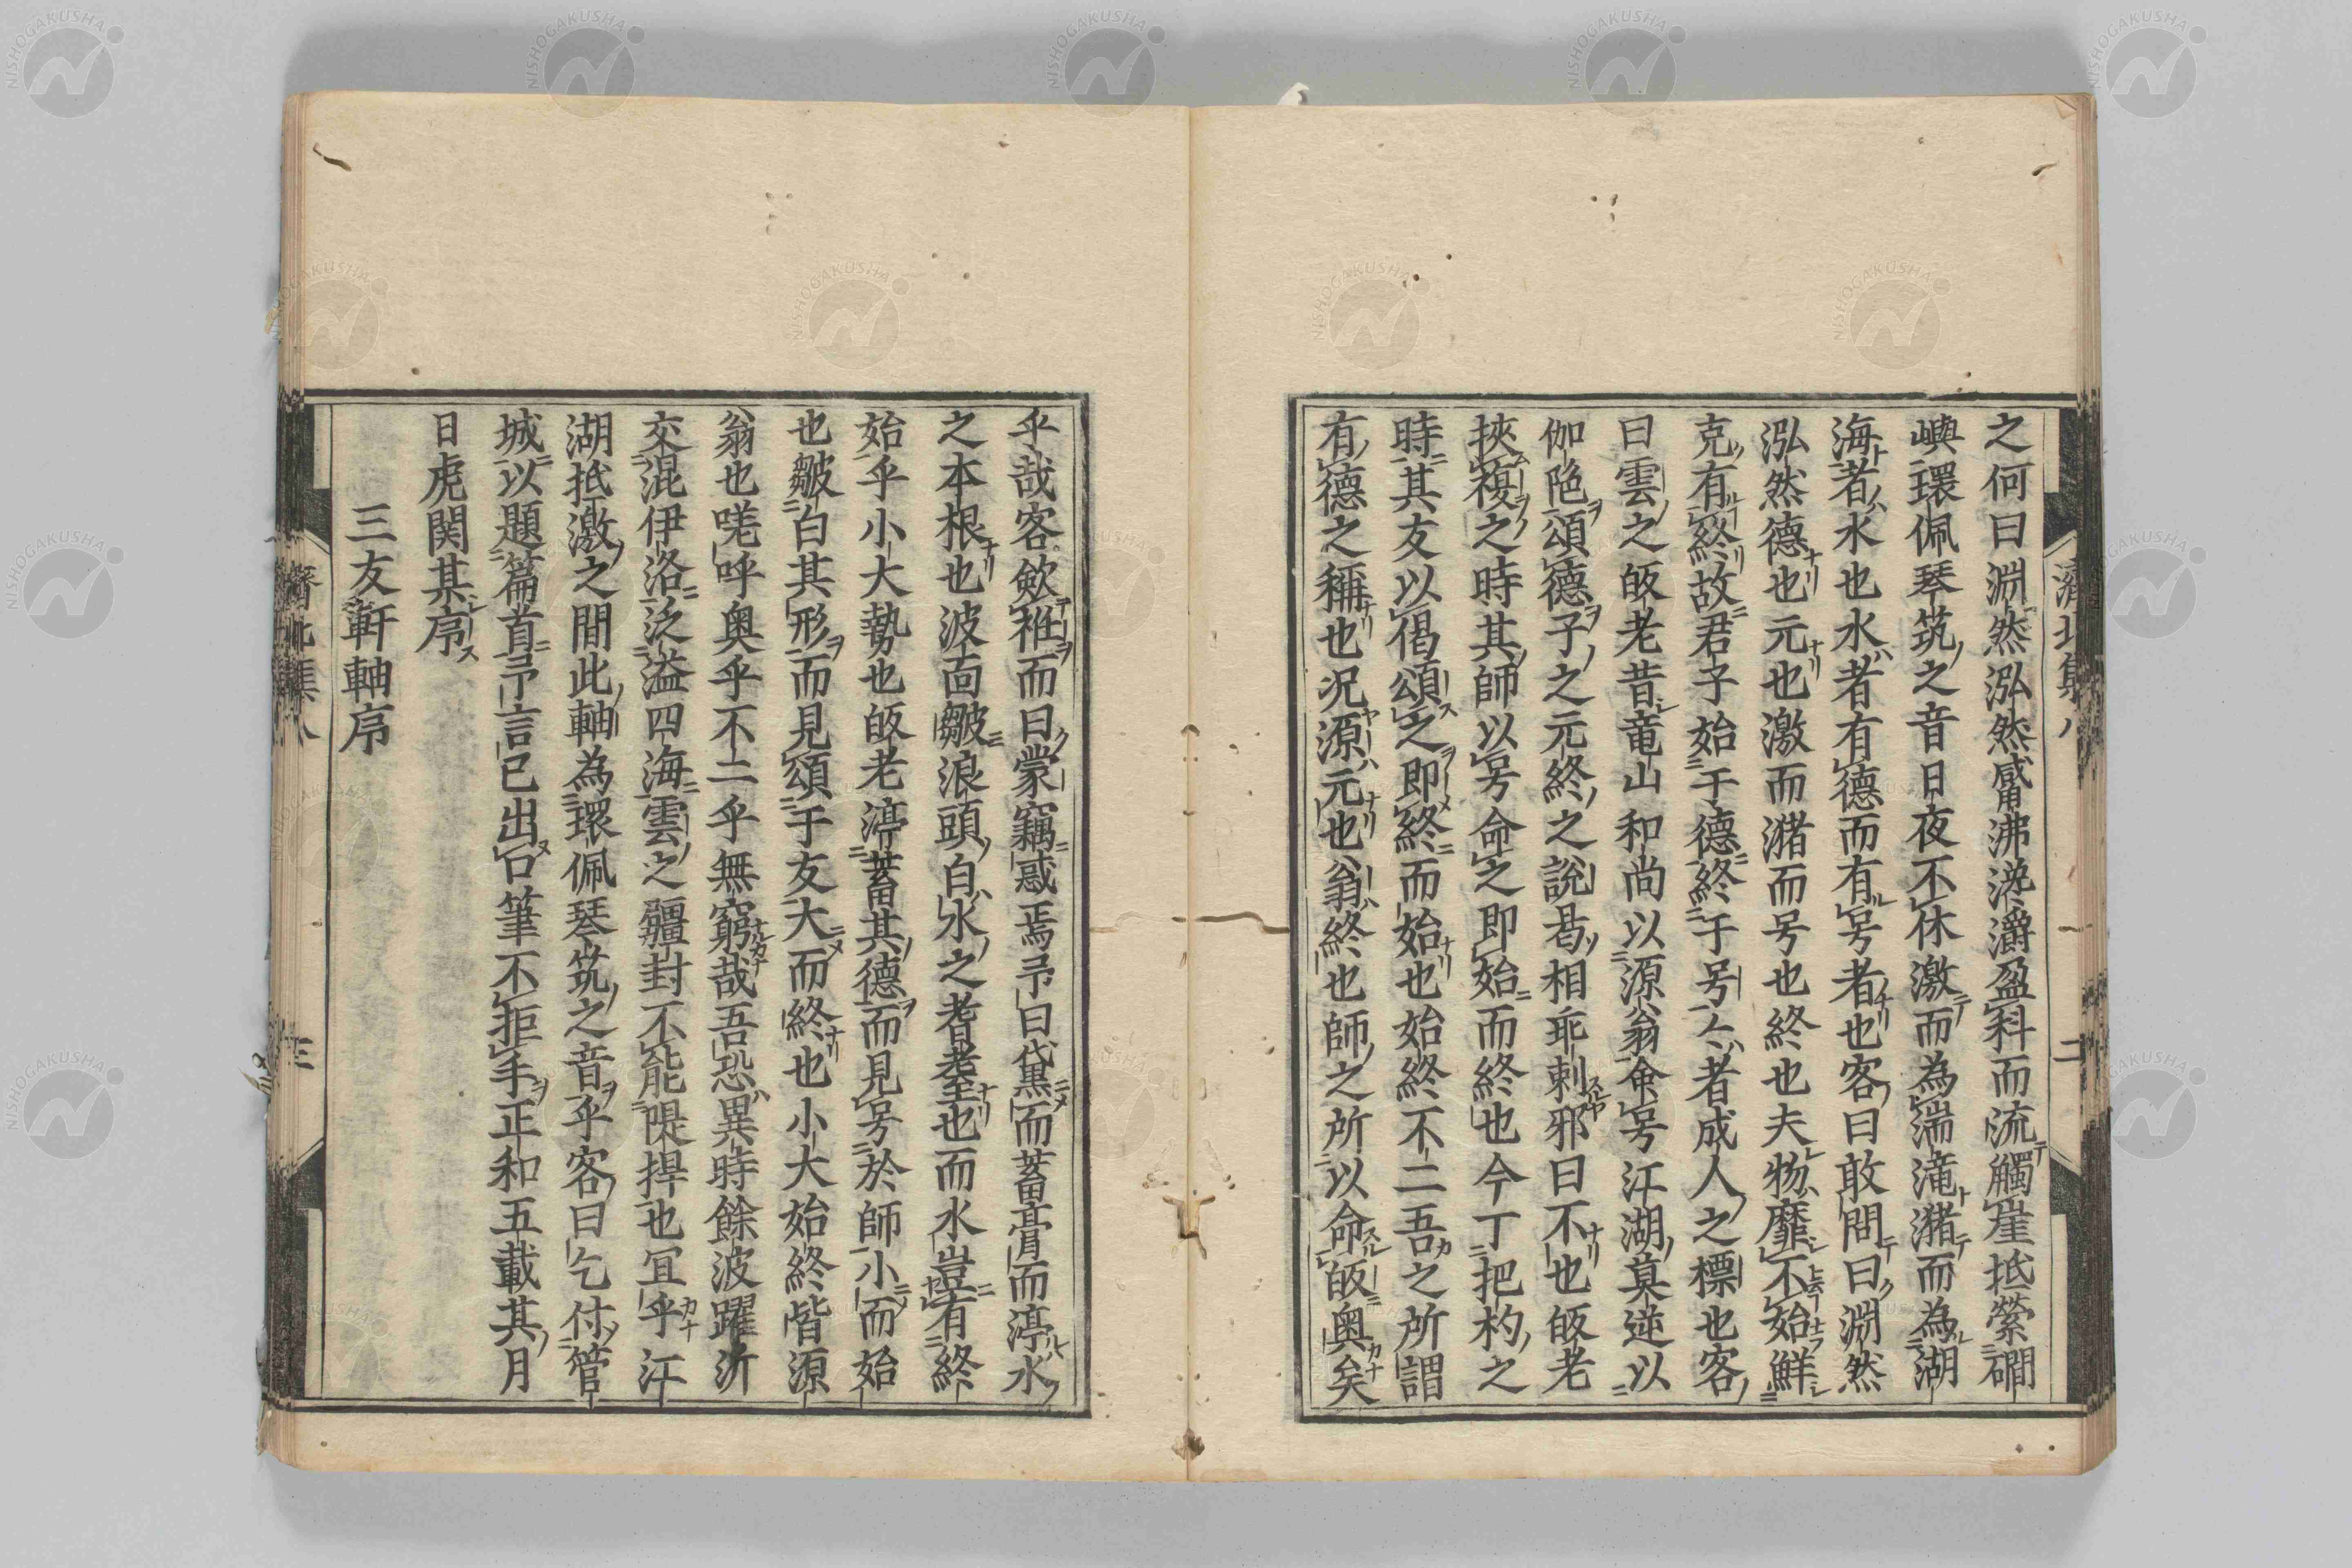 之何曰淵然泓然觱沸灂盈科而流觸崖抵縈磵
嶼環佩琴筑之音日夜不休激而為湍滝瀦而為湖
海者水也水者有德而有号者也客曰敢問曰淵然
泓然德也元也激而瀦而号也終也夫物靡不始鮮
克有終故君子始于德終于号々者成人之標也客
曰雲之皈老昔竜山和尚以源翁命号江湖莫逆以
伽陁頌德子之元終之說曷相乖剌邪曰不也皈老
挾複之時其師以号命之即始而終也今丁把杓之
時其友以偈頌之即終而始也始終不二吾之所謂
有德之稱也況源元也翁終也師之所以命皈奧矣
乎哉客歛袵而曰蒙竊惑焉予曰黛而蓄膏而渟水
之本根也波面皺浪頭白水之耆耋也而水豈有終
始乎小大勢也皈老渟蓄其德而見号於師小而始
也皺白其形而見頌于友大而終也小大始終皆源
翁也嗟呼奧乎不二乎無窮哉吾恐異時餘波躍沂
交混伊洛泛溢四海雲之疆封不能隄捍也宜乎江
湖抵激之間此軸為環佩琴筑之音乎客曰乞付管
城以題篇首予言已出口筆不拒手正和五載其月
日虎関某序
三友軒軸序
濟北集八
二
濟北集八
三
NISHOGAKUSHA